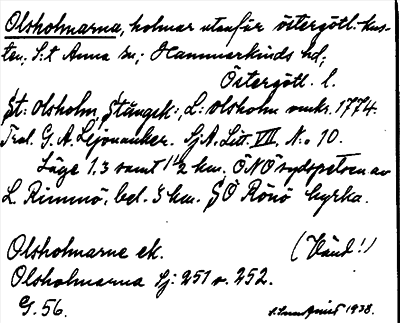 Olsholmarna, holmar utanför östergötl. kus-
ten; S:t Anna sn; Hammarkinds hd;
Östergötl. l.
St: Olsholm, Stångsk:, L: Olsholm omkr. 1774.
Trol. G. A. Leijonanker. Sj.A. Litt. VII, N:o 10.
Läge 1.3 samt 1 1/2 km. ÖNÖ sydspetsen av
L. Rimmö, bel. 3 km. SÖ Rönö kyrka.
Olsholmarne ek. (Vänd!)
Olsholmarna Sj: 251 o. 252.
G. 56.
1938.